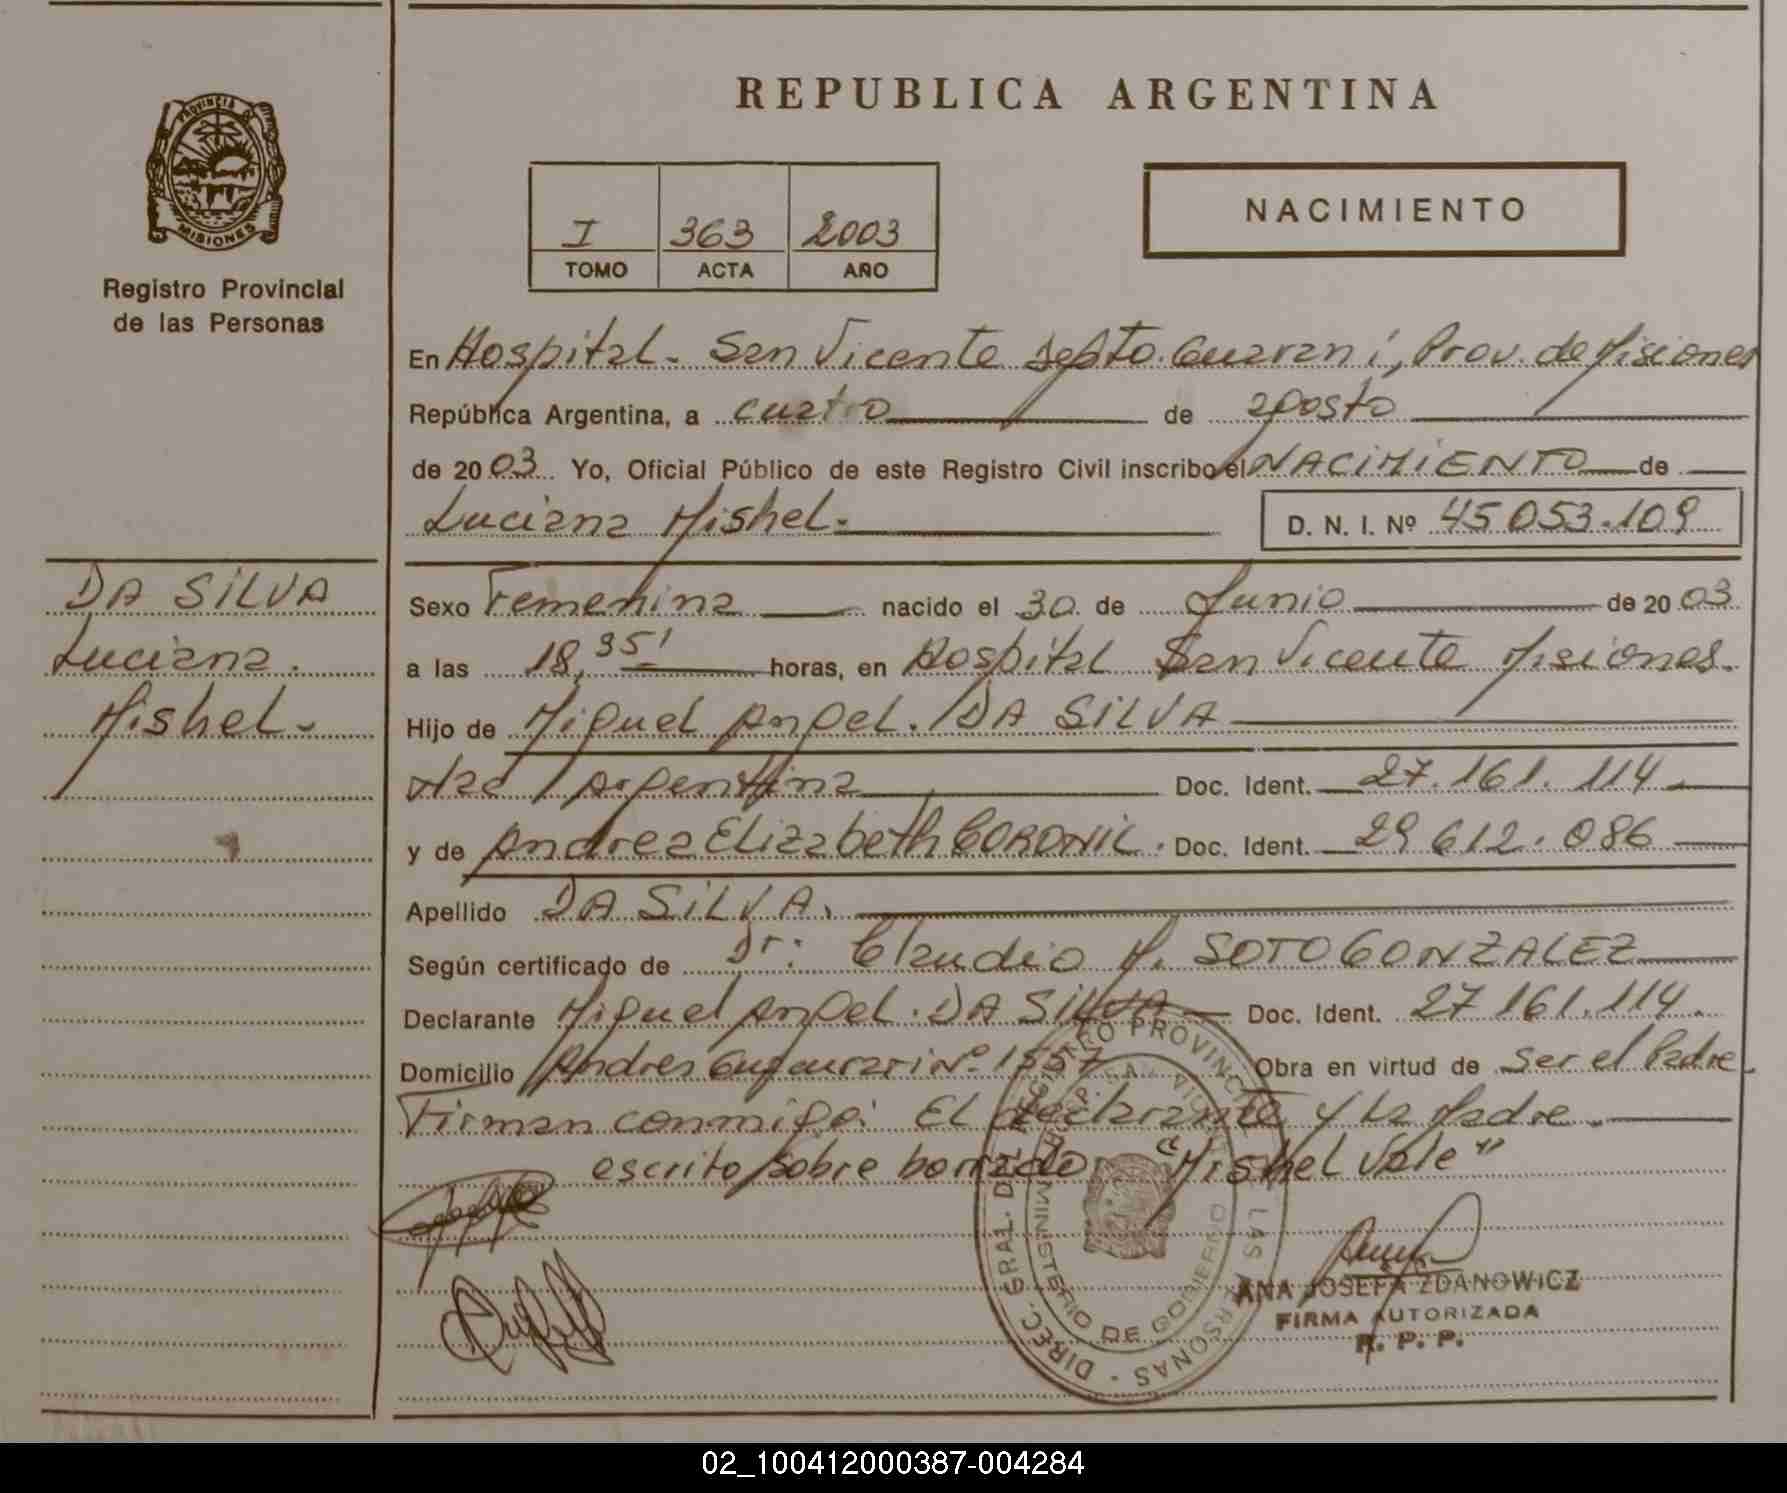 REPUBLICA ARGENTINA
PROVINCIA DE
MISIONES
Registro Provincial
de las Personas
I 363 2003
TOMO ACTA AÑO
NACIMIENTO
En Hospital - San Vicente Depto. Guarani, Prov. de Misiones
República Argentina, a cuatro de agosto
de 2003 Yo, Oficial Público de este Registro Civil inscribo el NACIMIENTO de
Luciana Mishel.
D. N. I. Nº 45 053.109
DA SILVA
Luciana.
Mishel -
Sexo Femenina nacido el 30 de Junio de 2003
a las 18,35' horas, en Hospital San Vicente Misiones.
Hijo de Miguel Angel. DA SILVA
Nac / Argentina Doc. Ident. 27.161.114
y de Andrea Elizabeth CORONIL. Doc. Ident. 29 612.086
Apellido DA SILVA.
Según certificado de Dr: Claudio M. SOTO GONZALEZ
Declarante Miguel Angel. DA SILVA Doc. Ident. 27 161.114.
Domicilio Andres Guacurari Nº 1557 Obra en virtud de ser el Padre.
Firman conmigo: El declarante y La Madre.
escrito sobre borrado: "Mishel Vale"
DIREC. GRAL. DEL REGISTRO PROVINCIAL DE LAS PERSONAS
MINISTERIO DE GOBIERNO
ANA JOSEFA ZDANOWICZ
FIRMA AUTORIZADA
R. P. P.
02_100412000387-004284